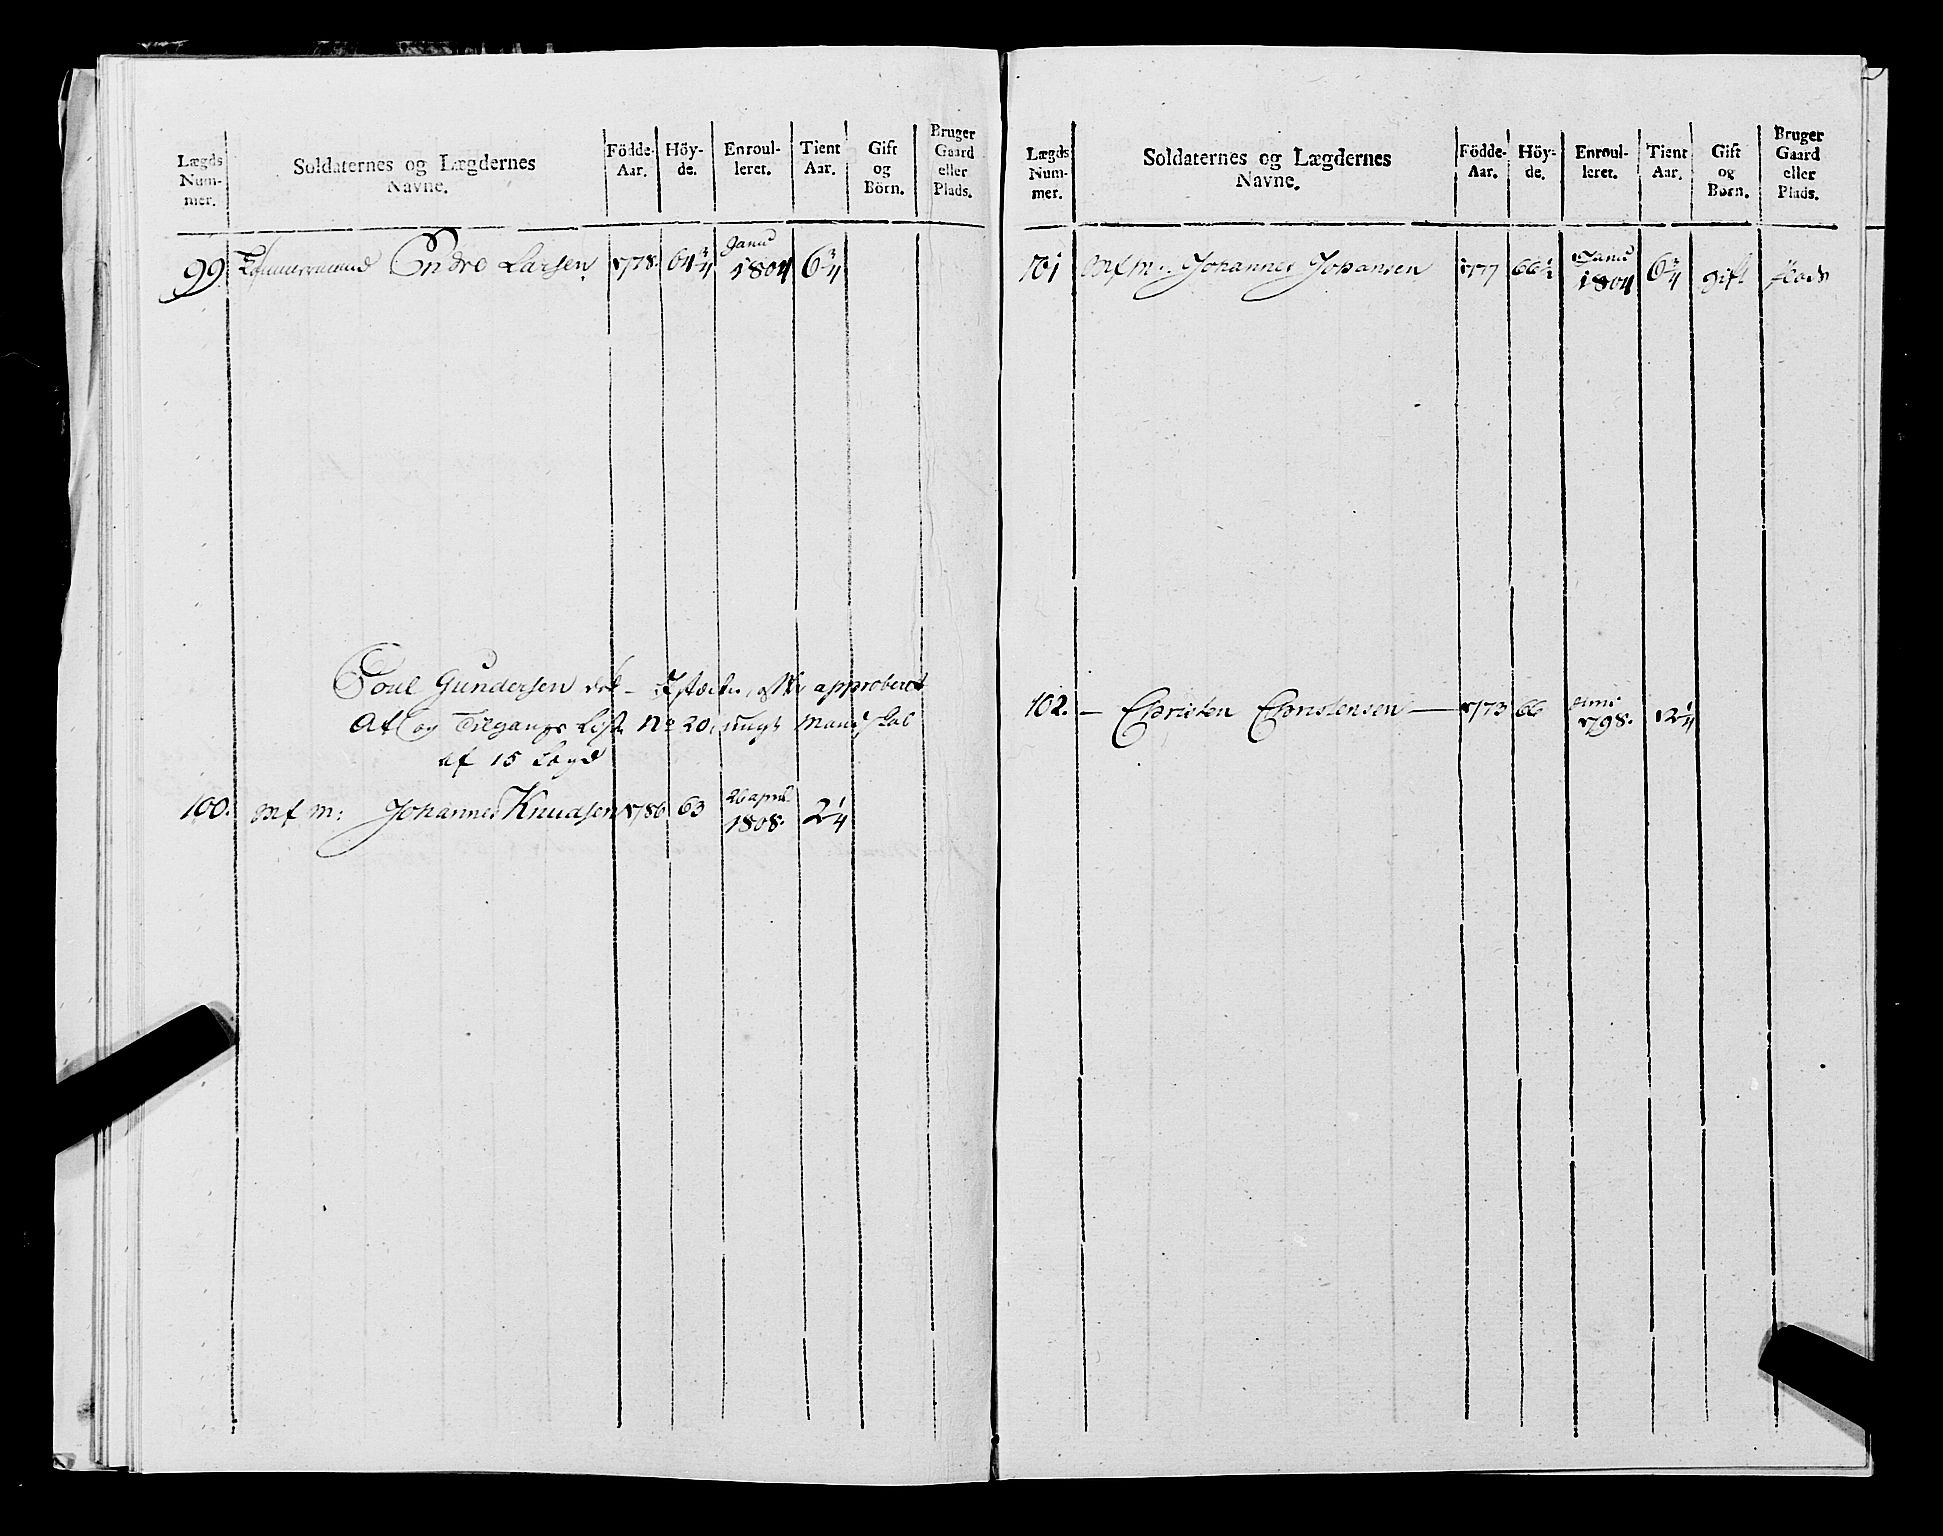 Lægds Num- mer.
Soldaternes og Lægdernes Navne.
Födde- Aar.
Höy- de.
Enroul- leret.
Tient Aar.
Gift og Börn.
Bruger Gaard eller Plads.
99. Tömmermand Endre Larsen 1778. 64 3/4 Janu 1804 6 3/4
Poul Gundersen approberet
Af og Tilgangs Liste No 20, Mandskab
af 15 Lægd
100. m: Johannes Knudsen 1786 63 26 april 1808. 2 1/4
Lægds Num- mer.
Soldaternes og Lægdernes Navne.
Födde- Aar.
Höy- de.
Enroul- leret.
Tient Aar.
Gift og Børn.
Bruger Gaard eller Plads.
101 m. Johannes Johansen 1777 66 1/2 Janu 1804 6 3/4 gift Plads
102. — Christen Christensen — 1773 66 1798. 12 1/4